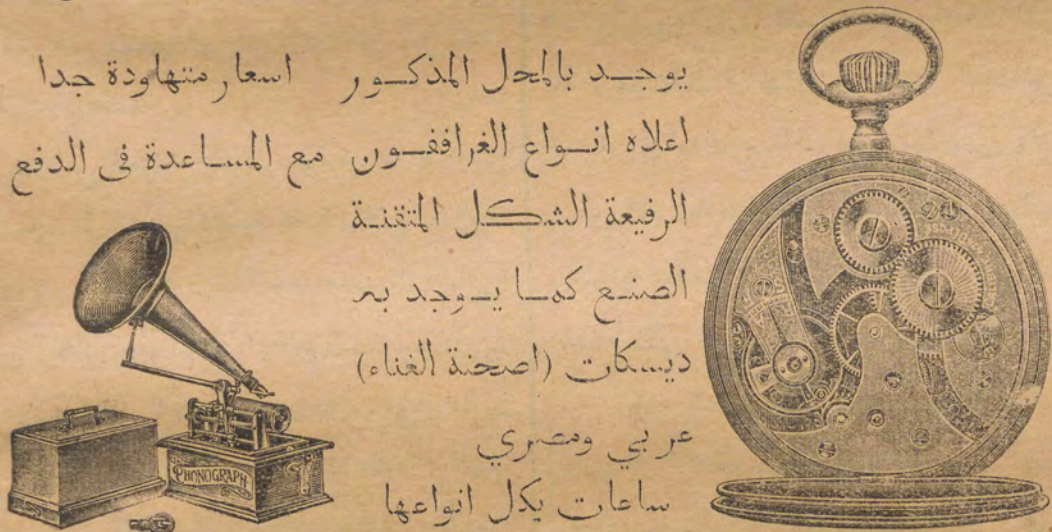 يوجد بالمحل المذكور
اعلاه انواع الغرافقون
الرفيعة الشكل المتقنة
الصنع كما يوجد به
ديسكات (اصحنة الغناء)
عربي ومصري
ساعات بكل انواعها
اسعار متهاودة جدا
مع المساعدة فى الدفع
PHONOGRAPH